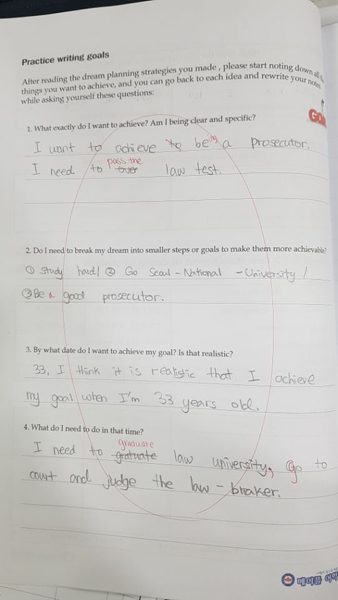 Practice writing goals
After reading the dream planning strategies you made, please start noting down all the
things you want to achieve, and you can go back to each idea and rewrite your notes
while asking yourself these questions:
1. What exactly do I want to achieve? Am I being clear and specific?
I want to achieve to being a prosecutor.
pass the
I need to over law test.
2. Do I need to break my dream into smaller steps or goals to make them more achievable?
① Study hard! ② Go Seoul-National-University!
③ Be a good prosecutor.
3. By what date do I want to achieve my goal? Is that realistic?
33, I think it is realistic that I achieve
my goal when I'm 33 years old.
4. What do I need to do in that time?
graduate
I need to gratuate law university, go to
court and judge the law-braker.